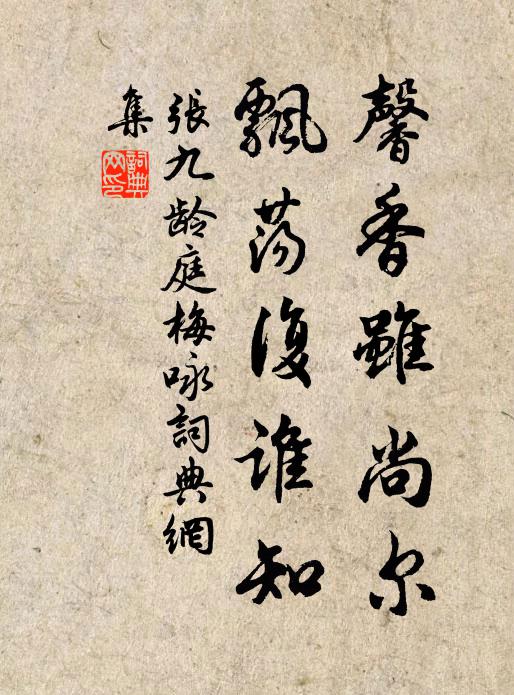 馨香雖尚尔
飄荡復誰知
張九龄庭梅咏詞典網
集
詞典
网印